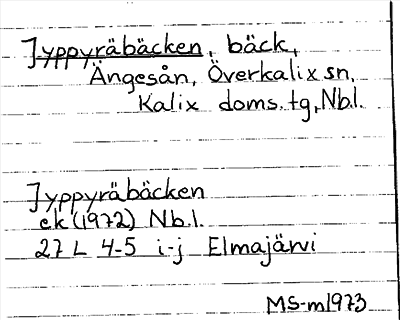 Jyppyräbäcken, bäck,
Ängesån, Överkalix sn,
Kalix doms. tg, Nb.l.
Jyppyräbäcken
ek (1972) Nb.l.
27 L 4-5 i-j Elmajärvi
MS-m1973